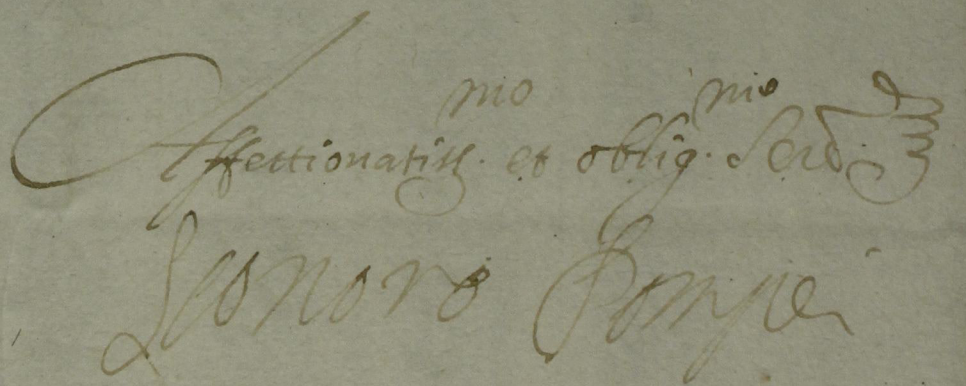 Affettionatiss.mo et oblig.mo Ser.
Leonoro Pompei